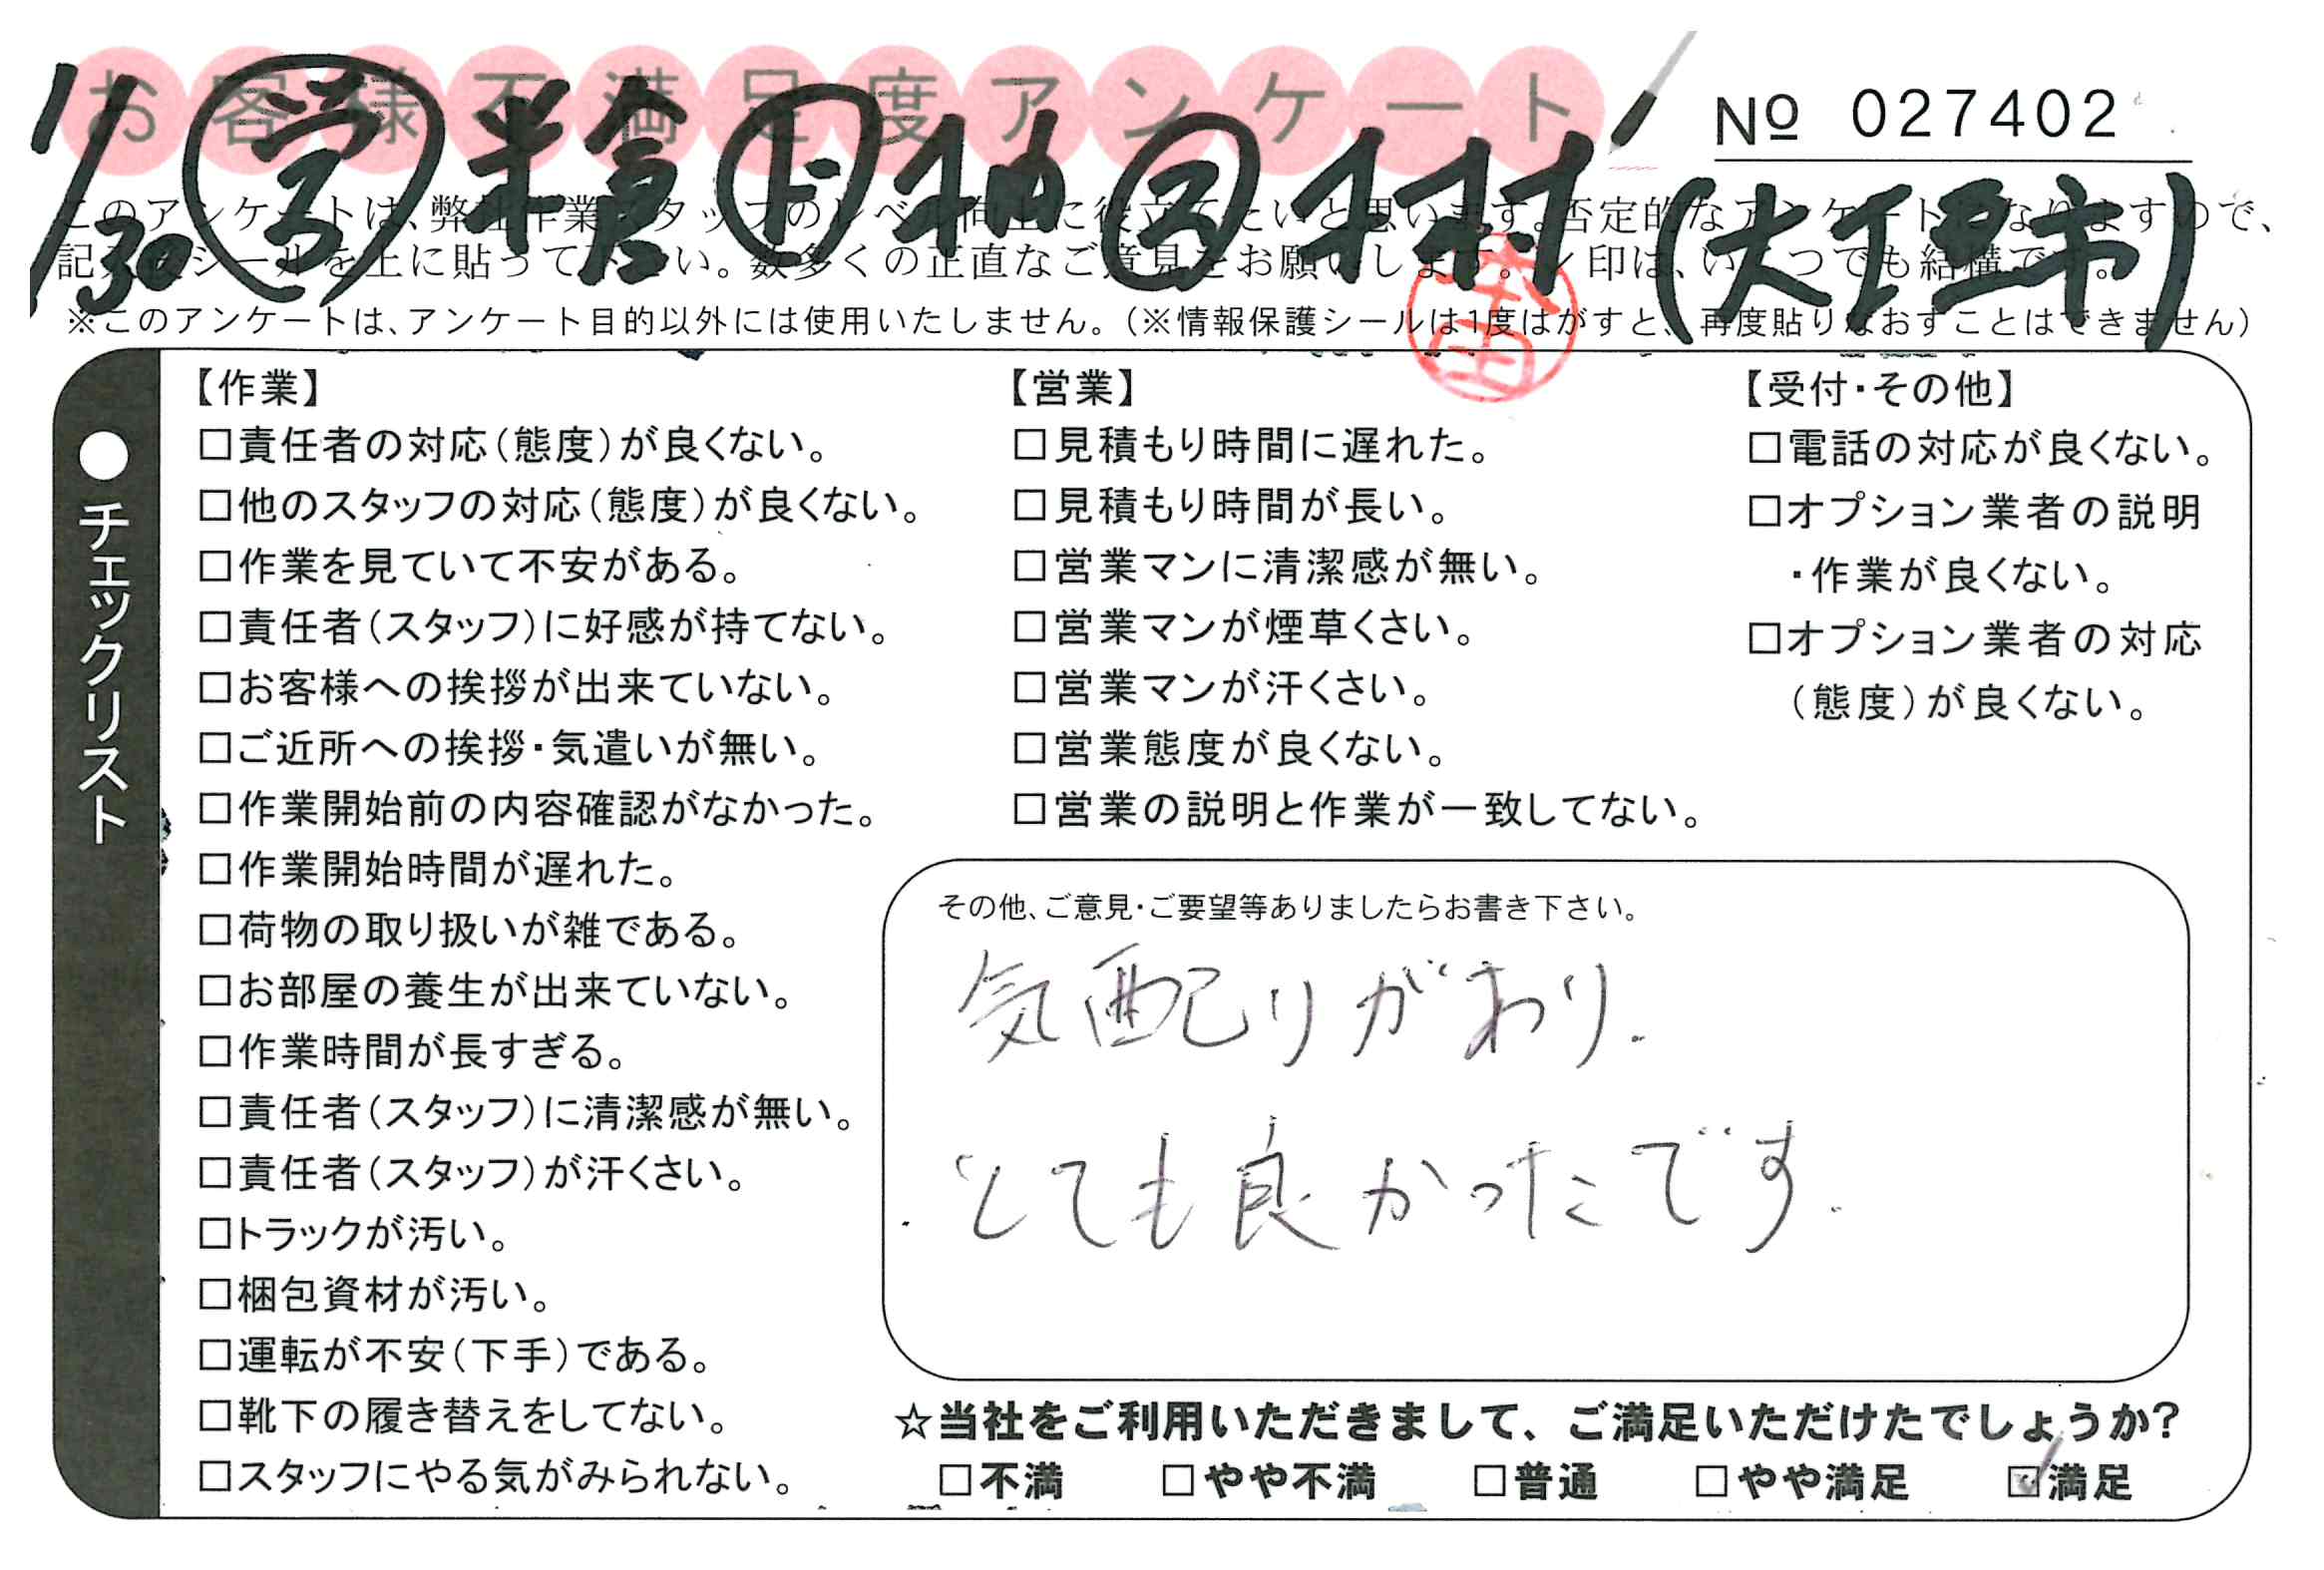 お客様不満足度アンケート
№ 027402
1/30 半倉 ド 柚 コ 木村 (大
市)
このアンケートは、弊社作業スタッフのレベル向上に役立てたいと思います。否定的なアンケートになりますので、
記入後シールを上に貼って下さい。数多くの正直なご意見をお願いします。レ印は、いくつでも結構です。
※このアンケートは、アンケート目的以外には使用いたしません。（※情報保護シールは1度はがすと、再度貼りなおすことはできません）
●チェックリスト
【作業】
□責任者の対応（態度）が良くない。
□他のスタッフの対応（態度）が良くない。
□作業を見ていて不安がある。
□責任者（スタッフ）に好感が持てない。
□お客様への挨拶が出来ていない。
□ご近所への挨拶・気遣いが無い。
□作業開始前の内容確認がなかった。
□作業開始時間が遅れた。
□荷物の取り扱いが雑である。
□お部屋の養生が出来ていない。
□作業時間が長すぎる。
□責任者（スタッフ）に清潔感が無い。
□責任者（スタッフ）が汗くさい。
□トラックが汚い。
□梱包資材が汚い。
□運転が不安（下手）である。
□靴下の履き替えをしてない。
□スタッフにやる気がみられない。
【営業】
□見積もり時間に遅れた。
□見積もり時間が長い。
□営業マンに清潔感が無い。
□営業マンが煙草くさい。
□営業マンが汗くさい。
□営業態度が良くない。
□営業の説明と作業が一致してない。
【受付・その他】
□電話の対応が良くない。
□オプション業者の説明
・作業が良くない。
□オプション業者の対応
（態度）が良くない。
その他、ご意見・ご要望等ありましたらお書き下さい。
気配りがあり.
とても良かったです.
☆当社をご利用いただきまして、ご満足いただけたでしょうか?
□不満 □やや不満 □普通 □やや満足 ☑満足